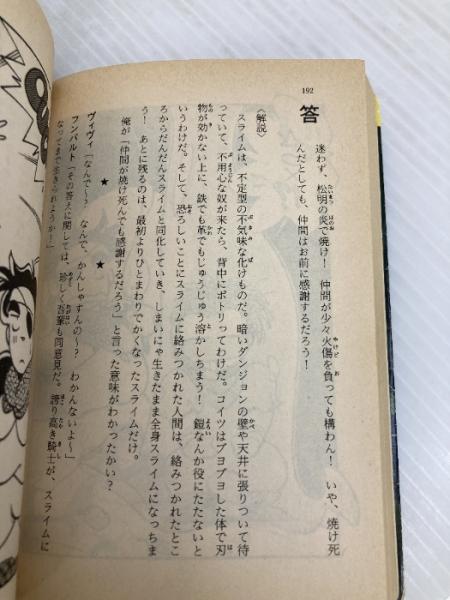 192
答
迷わず、松明の炎で焼け！　仲間が少々火傷を負っても構わん！　いや、焼け死
んだとしても、仲間はお前に感謝するだろう！
〈解説〉
スライムは、不定型の不気味な化けものだ。暗いダンジョンの壁や天井に張りついて待
っていて、不用心な奴が来たら、背中にポトリってわけだ。コイツはブヨブヨした体で刃
物が効かない上に、鉄でも革でもじゅうじゅう溶かしちまう！　鎧なんか役にたたないと
いうわけだ。そして、恐ろしいことにスライムに絡みつかれた人間は、絡みつかれたとこ
ろからだんだんスライムと同化していき、しまいにゃ生きたまま全身スライムになっちま
う！　あとに残るのは、最初よりひとまわりでかくなったスライムだけ。
俺が「仲間が焼け死んでも感謝するだろう」と言った意味がわかったかい？
★　★
ヴィヴィ「なんで〜？　なんで、かんしゃすんの〜？　わかんないよ〜」
フンバルト「その答えに関しては、珍しく吾輩も同意見だ。誇り高き騎士が、スライムに
なってまで生きられようか！」